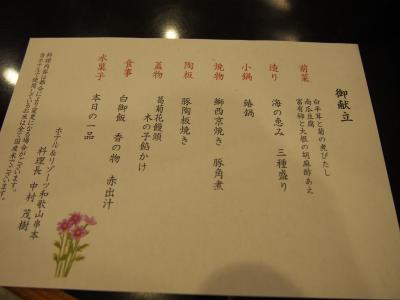 御献立
前菜
白平茸と菊の煮びたし
南瓜豆腐
富有柿と大根の胡麻酢あえ
造り
海の恵み 三種盛り
小鍋
鯱鍋
焼物
鰤西京焼き 豚角煮
陶板
豚陶板焼き
蓋物
菊花饅頭
木の子餡かけ
食事
白御飯 香の物 赤出汁
水菓子
本日の一品
ホテル&リゾーツ和歌山串本
料理長 中村 茂樹
料理内容は都合により変更になる場合がございます。
当ホテルで使用しているお米は全て国産米でございます。